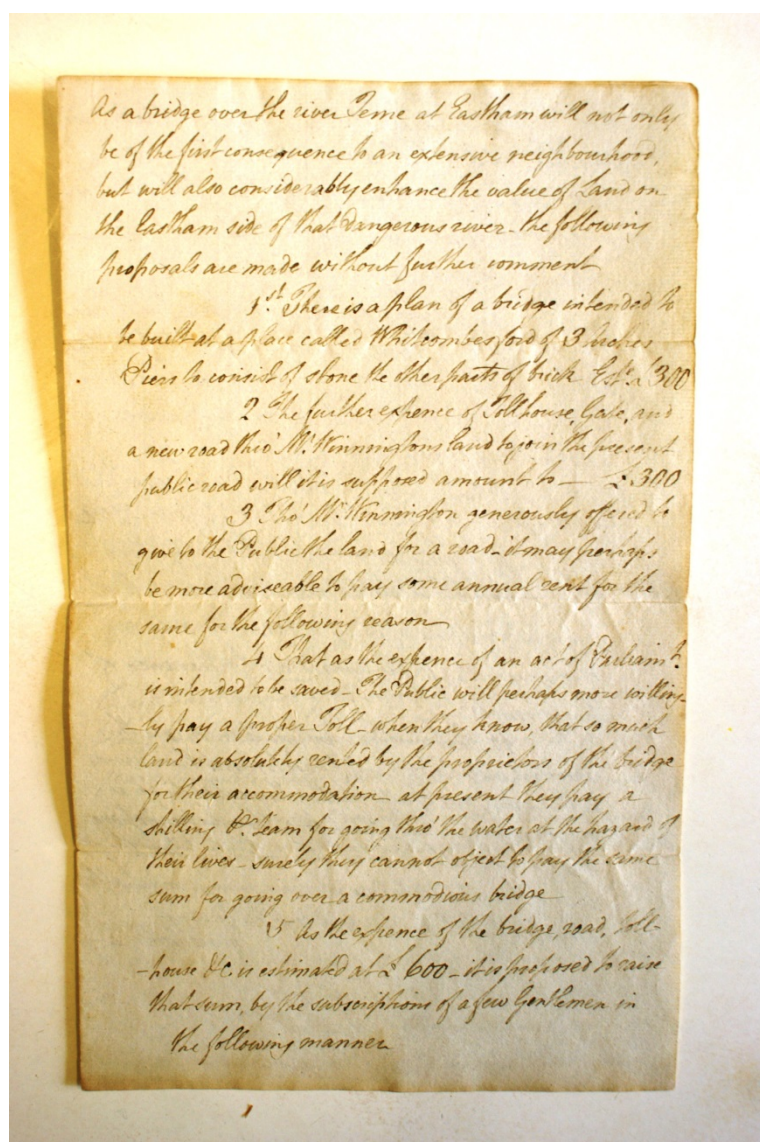 As a bridge over the river Teme at Eastham will not only
be of the first consequence to an extensive neighbourhood,
but will also considerably enhance the value of Land on
the Eastham side of that Dangerous river - the following
proposals are made without further comment
1st. There is a plan of a bridge intended to
be built at a place called Whitcombes ford of 3 Arches
Piers to consist of stone the other parts of brick Estd. £300
2 The further expence of Tollhouse, Gate, and
a new road thro' Mr. Winningtons land to join the present
public road will it is supposed amount to — £300
3 Tho' Mr. Winnington generously offered to
give to the Public the land for a road - it may perhaps
be more adviseable to pay some annual rent for the
same for the following reason
4 That as the expence of an act of Parliamt.
is intended to be saved - The Public will perhaps more willing-
-ly pay a proper Toll - when they know, that so much
land is absolutely rented by the proprietors of the bridge
for their accommodation at present they pay a
shilling Pr. Team for going thro' the water at the hazard of
their lives - surely they cannot object to pay the same
sum for going over a commodious bridge
5 As the expence of the bridge, road, toll-
-house &c is estimated at £600 - it is proposed to raise
that sum, by the subscriptions of a few Gentlemen in
the following manner